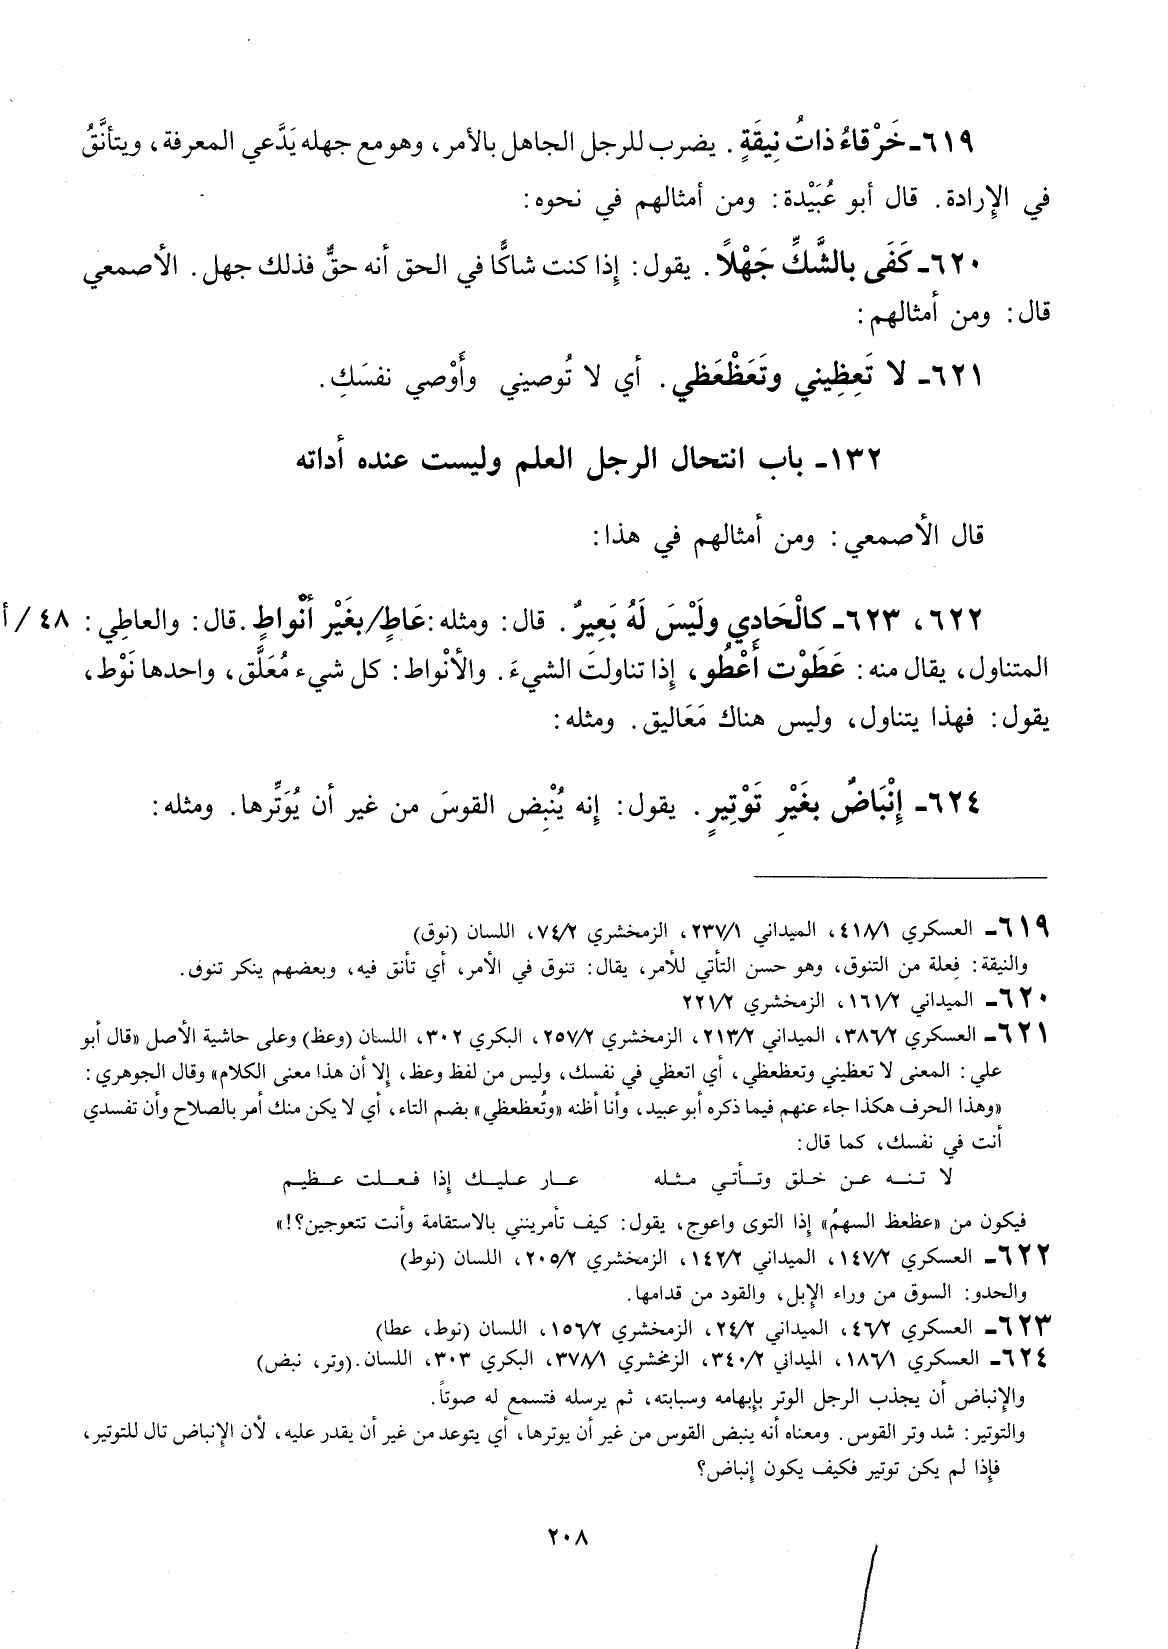 ٦١٩ـ خَرْقاءُ ذاتُ نِيقَةٍ. يضرب للرجل الجاهل بالأمر، وهو مع جهله يَدَّعي المعرفة، ويتأنَّقُ
في الإرادة. قال أبو عُبَيْدة: ومن أمثالهم في نحوه:
٦٢٠ـ كَفَى بالشَّكِّ جَهْلاً. يقول: إذا كنت شاكًّا في الحق أنه حقٌّ فذلك جهل. الأصمعي
قال: ومن أمثالهم:
٦٢١ـ لا تَعِظِيني وتَعَظْعَظي. أي لا تُوصيني وأَوْصي نفسَكِ.
١٣٢ـ باب انتحال الرجل العلم وليست عنده أداته
قال الأصمعي: ومن أمثالهم في هذا:
٦٢٢، ٦٢٣ـ كالْحَادِي ولَيْسَ لَهُ بَعِيرٌ. قال: ومثله: عَاطٍ/بغَيْر أنْواطٍ. قال: والعاطِي: ٤٨/أ
المتناول، يقال منه: عَطَوْت أَعْطُو، إذا تناولتَ الشيءَ. والأنْواط: كل شيء مُعَلَّق، واحدها نَوْط،
يقول: فهذا يتناول، وليس هناك مَعَاليق. ومثله:
٦٢٤ـ إنْبَاضٌ بغَيْرِ تَوْتِيرٍ. يقول: إنه يُنْبِض القوسَ من غير أن يُوَتِّرها. ومثله:
٦١٩ـ العسكري ٤١٨/١، الميداني ٢٣٧/١، الزمخشري ٧٤/٢، اللسان (نوق)
والنيقة: فِعلة من التنوق، وهو حسن التأتي للأمر، يقال: تنوق في الأمر، أي تأنق فيه، وبعضهم ينكر تنوق.
٦٢٠ـ الميداني ١٦١/٢، الزمخشري ٢٢١/٢
٦٢١ـ العسكري ٣٨٦/٢، الميداني ٢١٣/٢، الزمخشري ٢٥٧/٢، البكري ٣٠٢، اللسان (وعظ) وعلى حاشية الأصل «قال أبو
علي: المعنى لا تعظيني وتعظعظي، أي اتعظي في نفسك، وليس من لفظ وعظ، إلا أن هذا معنى الكلام» وقال الجوهري:
«وهذا الحرف هكذا جاء عنهم فيما ذكره أبو عبيد، وأنا أظنه «وتُعظعظي» بضم التاء، أي لا يكن منك أمر بالصلاح وأن تفسدي
أنت في نفسك، كما قال:
لا تنه عن خلق وتأتي مثله عار عليك إذا فعلت عظيم
فيكون من «عظعظ السهمُ» إذا التوى واعوج، يقول: كيف تأمرينني بالاستقامة وأنت تتعوجين؟!»
٦٢٢ـ العسكري ١٤٧/٢، الميداني ١٤٢/٢، الزمخشري ٢٠٥/٢، اللسان (نوط)
والحدو: السوق من وراء الإبل، والقود من قدامها.
٦٢٣ـ العسكري ٤٦/٢، الميداني ٢٤/٢، الزمخشري ١٥٦/٢، اللسان (نوط، عطا)
٦٢٤ـ العسكري ١٨٦/١، الميداني ٣٤٠/٢، الزمخشري ٣٧٨/١، البكري ٣٠٣، اللسان. (وتر، نبض)
والإنباض أن يجذب الرجل الوتر بإبهامه وسبابته، ثم يرسله فتسمع له صوتاً.
والتوتير: شد وتر القوس. ومعناه أنه ينبض القوس من غير أن يوترها، أي يتوعد من غير أن يقدر عليه، لأن الإنباض تال للتوتير،
فإذا لم يكن توتير فكيف يكون إنباض؟
٢٠٨